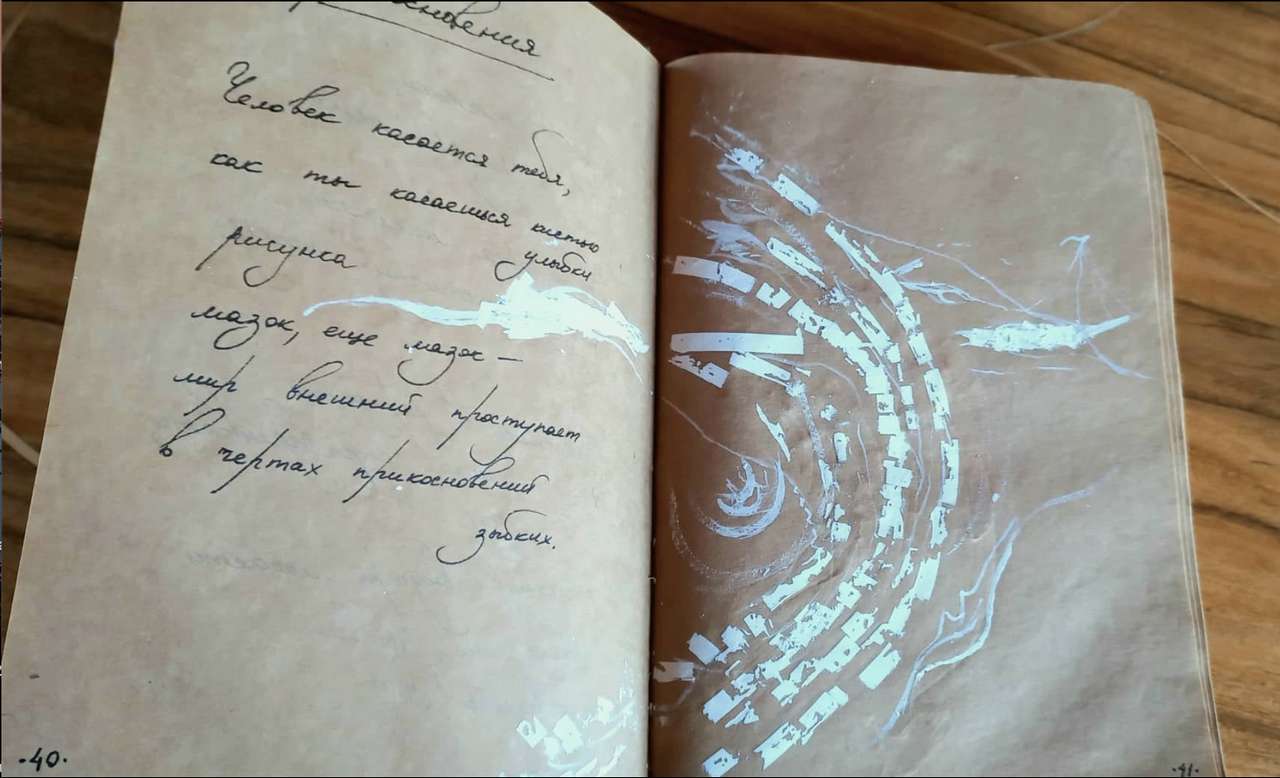 Прикосновения
Человек касается тебя,
как ты касаешься кистью
рисунка улыбки
мазок, еще мазок —
мир внешний проступает
в чертах прикосновений
зыбких.
·40·
·41·